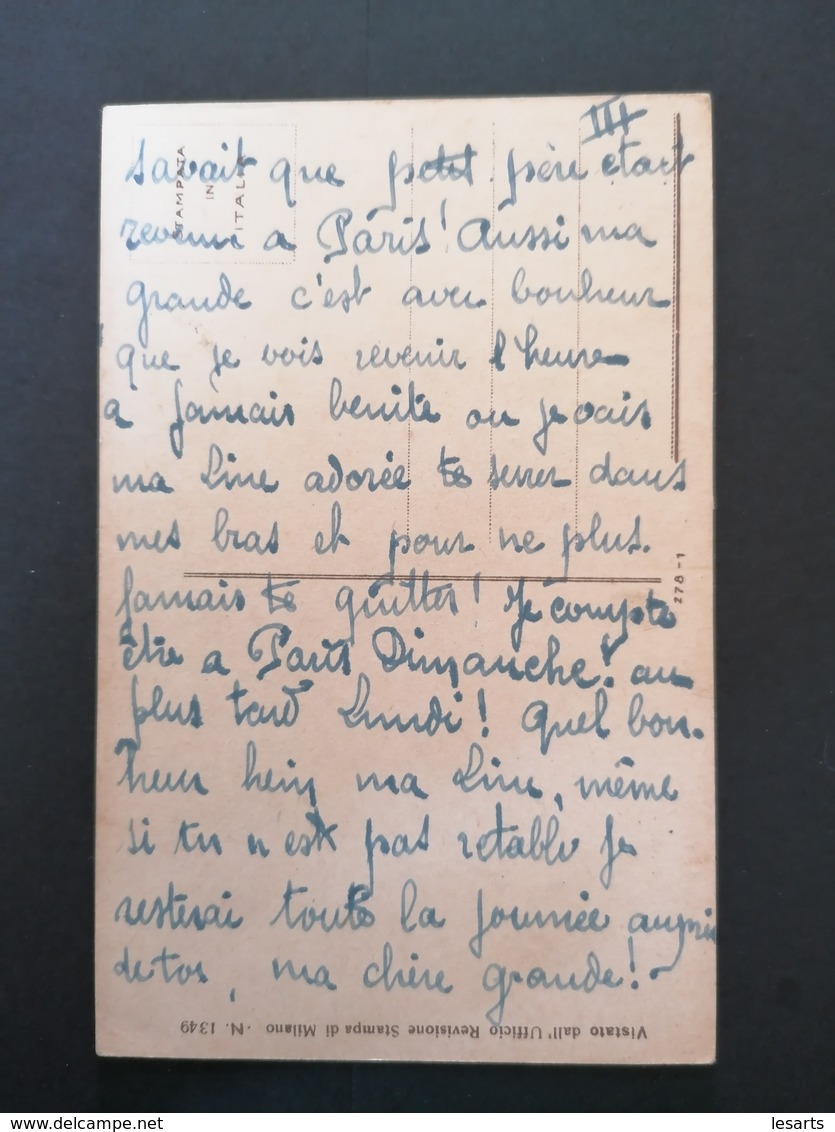 III
savait que petit père etait
revenu a Paris! Aussi ma
grande c'est avec bonheur
que je vois revenir l heure
a jamais benite ou je vais
ma Line adorée te serrer dans
mes bras et pour ne plus.
jamais te quitter! Je compte
être a Paris Dimanche! au
plus tard Lundi! Quel bon-
heur hein ma Line, même
si tu n est pas retabli je
resterai toute la journée auprès
de toi, ma chère grande!
STAMPATA
IN
ITALIA
278-1
Vistato dall' Ufficio Revisione Stampa di Milano - N. 1349
delcampe.net
lesarts